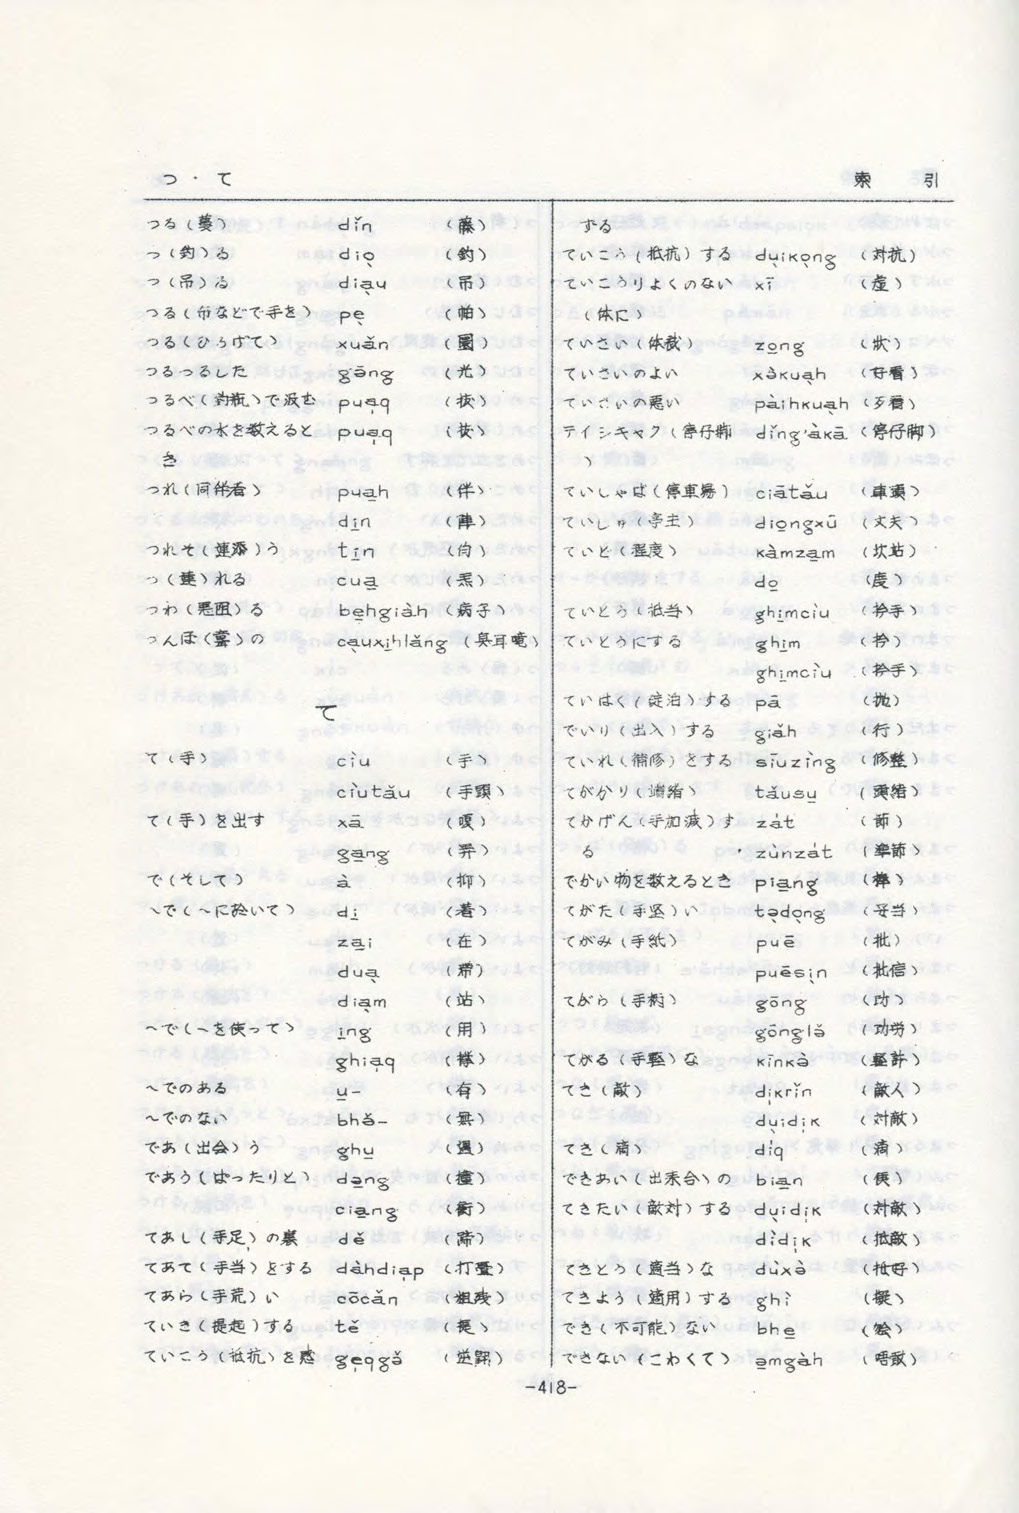 つ・て
索引
つる(蔓) dǐn (藤)
つ(釣)る diọ (釣)
つ(吊)る diạu (吊)
つる(布などで手を) pẹ (帕)
つる(ひろげて) xuǎn (圜)
つるつるした gōng (光)
つるべ(釣瓶)で汲む puạq
つるべの水を数えると puạq
き
つれ(同伴者) pua̱h (伴)
di̱n (陣)
つれそ(連添)う ti̱n
つ(連)れる cua̱
つわ(悪阻)る be̱hgiàh (病子)
つんぼ(聾)の cạuxi̱hlǎng (臭耳聾)
て
て(手) cìu (手)
cìutǎu (手頭)
て(手)を出す xā (嗄)
ga̱ng
で(そして) à (抑)
〜で(〜に於いて) di̱ (著)
za̱i (在)
duạ (帯)
diạm (站)
〜で(〜を使って) i̱ng (用)
ghiạq (様)
〜でのある u̱- (有)
〜でのない bhǒ- (無)
であ(出会)う ghu̱ (遇)
であう(ばったりと) da̱ng (撞)
cia̱ng (衝)
てあし(手足)の裏 dě (蹄)
てあて(手当)をする dàhdiạp (打疊)
てあら(手荒)い cōcǎn (粗残)
ていき(提起)する tě (提)
ていこう(抵抗)を感 gẹqgǎ
ずる
ていこう(抵抗)する dụikọng (対抗)
ていこうりよくのない xī (虚)
(体に)
ていさい(体裁) zo̱ng (状)
ていさいのよい xòkuạh (好看)
ていさいの悪い pàihkuạh (歹看)
テイシキャク(停仔脚 dǐng'àkā (停仔脚)
)
ていしゃば(停車場) ciātǎu (車頭)
ていしゅ(亭主) diọngxū (丈夫)
ていど(程度) kàmza̱m (坎站)
do̱ (度)
ていとう(抵当) ghi̱mcìu
ていとうにする ghi̱m
ghi̱mcìu
ていはく(碇泊)する pā (抛)
でいり(出入)する giǎh (行)
ていれ(補修)をする siūzìng (修整)
てがかり(端緒) tǎusu̱ (頭緒)
てかげん(手加減)す zát (節)
る zùnzát (準節)
でかい物を数えるとき pia̱ng
てがた(手堅)い tọdọng (妥当)
てがみ(手紙) puē (批)
puēsịn (批信)
てがら(手柄) gōng (功)
gōnglǒ (功労)
てがる(手軽)な kīnkò
てき(敵) dịkrǐn (敵人)
dụidịk (対敵)
てき(滴) diq (滴)
できあい(出来合)の bia̱n (便)
てきたい(敵対)する dụidịk (対敵)
dìdịk (抵敵)
てきとう(適当)な dùxò (抵好)
てきよう(適用)する ghì (擬)
でき(不可能)ない bhe̱
できない(こわくて) ṃgàh (唔敢)
-418-